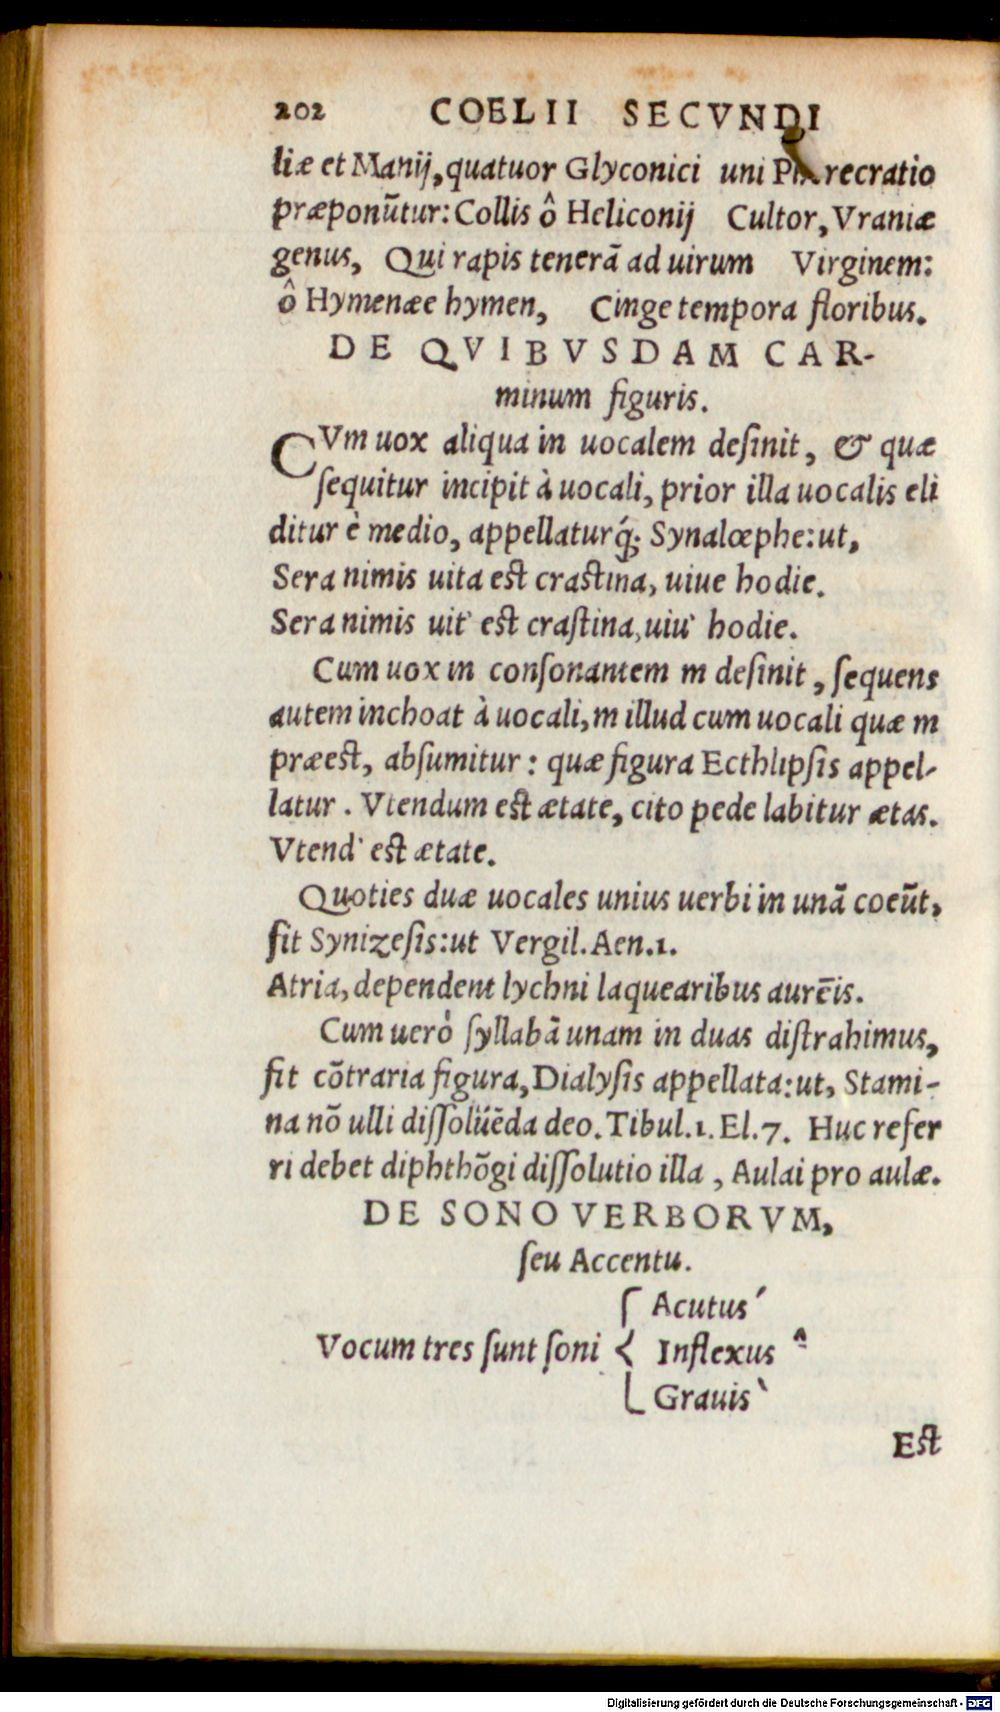 202 COELII SECVNDI
liæ et Manij, quatuor Glyconici uni recratio
præponũtur: Collis ô Heliconij Cultor, Vraniæ
genus, Qui rapis tenerã ad uirum Virginem:
ô Hymenæe hymen, Cinge tempora floribus.
DE QVIBVSDAM CAR-
minum figuris.
CVm uox aliqua in uocalem deſinit, & quæ
ſequitur incipit à uocali, prior illa uocalis eli
ditur è medio, appellaturq́; Synalœphe: ut,
Sera nimis uita est crastina, uiue hodie.
Sera nimis uit' est craſtina, uiu' hodie.
Cum uox in conſonantem m deſinit, ſequens
autem inchoat à uocali, m illud cum uocali quæ m
præest, abſumitur: quæ figura Ecthlipſis appel-
latur. Vtendum est ætate, cito pede labitur ætas.
Vtend' est ætate.
Quoties duæ uocales unius uerbi in unã coeũt,
fit Synizeſis: ut Vergil. Aen. 1.
Atria, dependent lychni laquearibus aurēis.
Cum uerò ſyllabã unam in duas diſtrahimus,
fit cõtraria figura, Dialyſis appellata: ut, Stami-
na nõ ulli diſſolüẽda deo. Tibul. 1. El. 7. Huc refer
ri debet diphthõgi diſſolutio illa, Aulai pro aulæ.
DE SONO VERBORVM,
ſeu Accentu.
Acutus ´
Vocum tres ſunt ſoni { Inflexus ^
Grauis `
Est
Digitalisierung gefördert durch die Deutsche Forschungsgemeinschaft - DFG